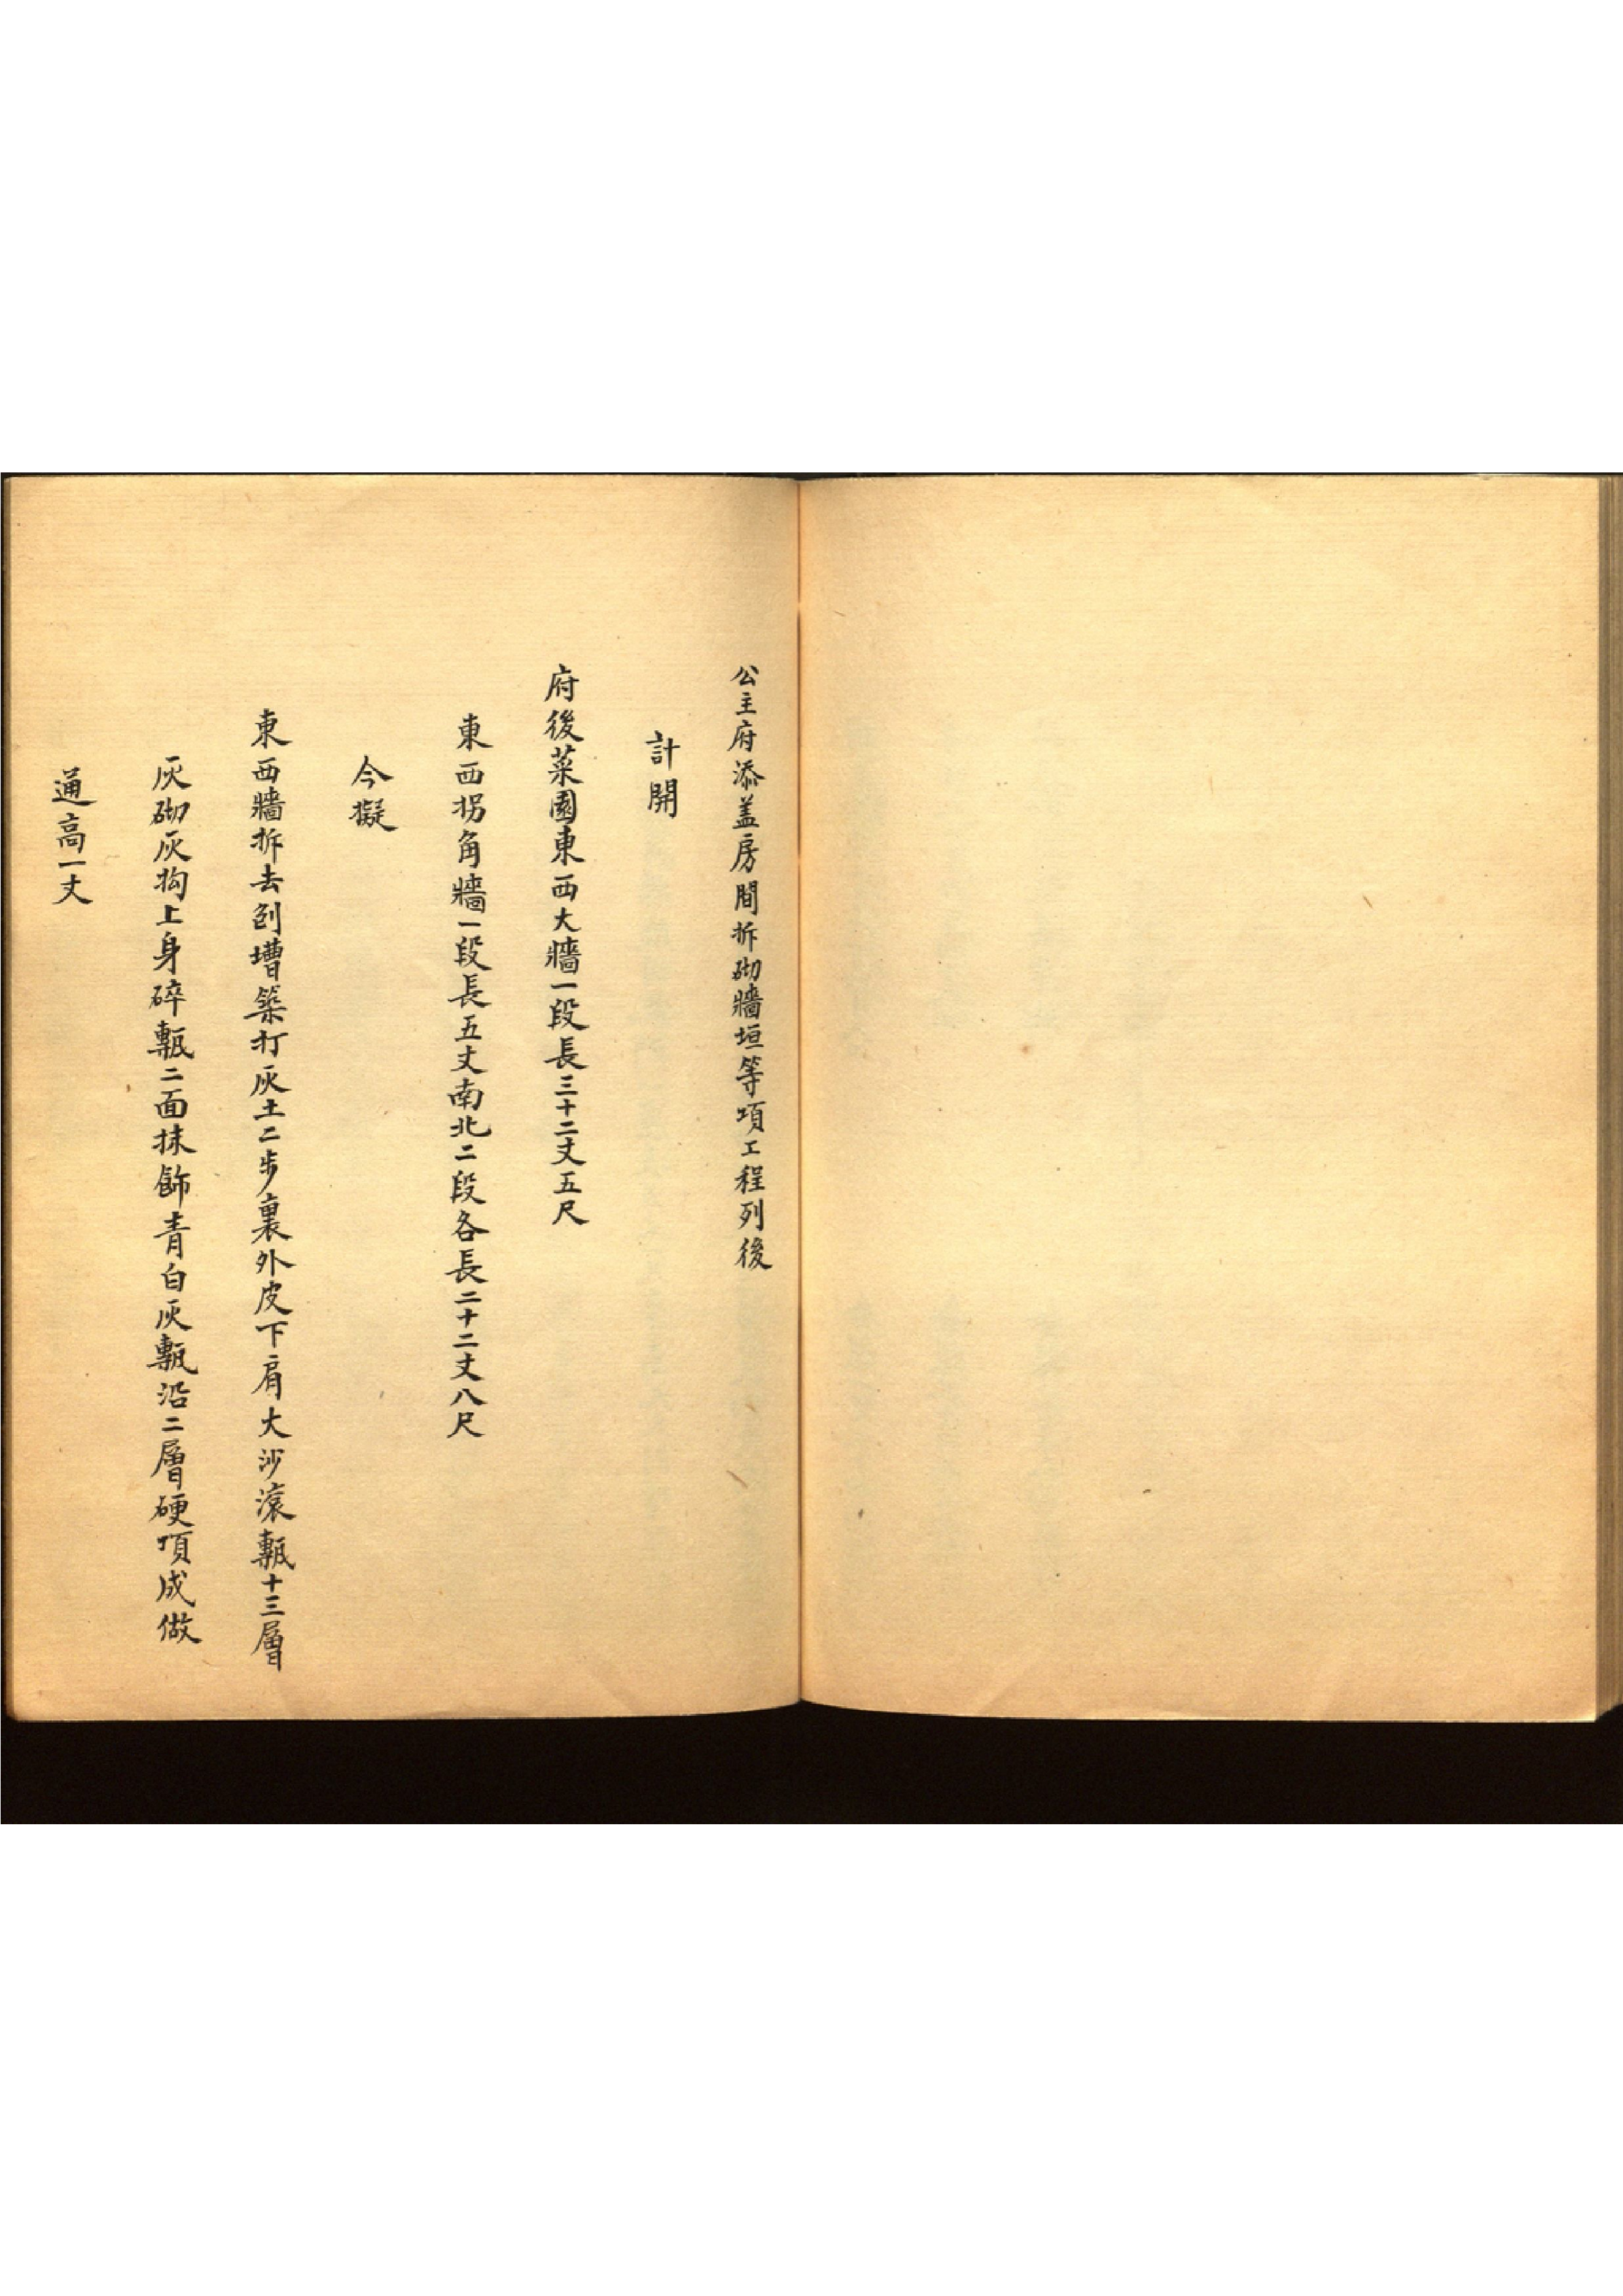 公主府添盖房間拆砌牆垣等項工程列後
計開
府後菜園東西大牆一段長三十二丈五尺
東西拐角牆一段長五丈南北二段各長二十二丈八尺
今擬
東西牆拆去刨壋築打灰土二步裏外皮下肩大沙滾甎十三層
灰砌灰抅上身碎甎二面抹飾青白灰甎沿二層硬頂成做
通高一丈